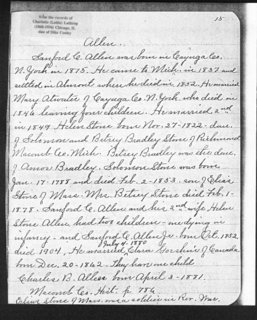 From the records of
Charlotte (Lottie) Ludwig
(1868-1956) Chicago, Il.
dau of Ellis Cooley
15
Allen.
Sanford C. Allen was born in Cayuga Co.
N. York in 1815. He came to Mich. in 1837 and
settled in Almont where he died in 1852. He married
Mary Atwater of Cayuga Co. N. York who died in
1846 leaving four children. He married 2-nd
in 1849 Helen Stone born Nov. 27-1822. dau.
of Solomon and Betsey Bradley Stone of Richmond
Macomb Co. Mich. Betsey Bradley was the dau.
of Amos Bradley. Solomon Stone was born
Jan. 17-1788 and died Feb. 2-1853. son of Eliar
Stone of Mass. Mrs. Betsey Stone died Feb. 1-
1878. Sanford C. Allen and his 2-nd wife Helen
Stone Allen had two children - one dying in
infancy - and Sanford C. Allen Jr. born Oct. 1852
July 4. 1880
died 1904. He married Clara of Canada
born Dec. 20-1862. They had one child
Charles B. Allen born April 3-1881.
Macomb Co. Hist. p. 786
Stone of Mass. was a soldier in Rev. War.